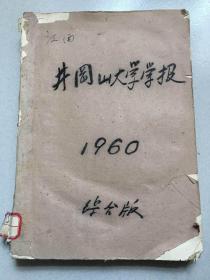 江西
井冈山大学学报
1960